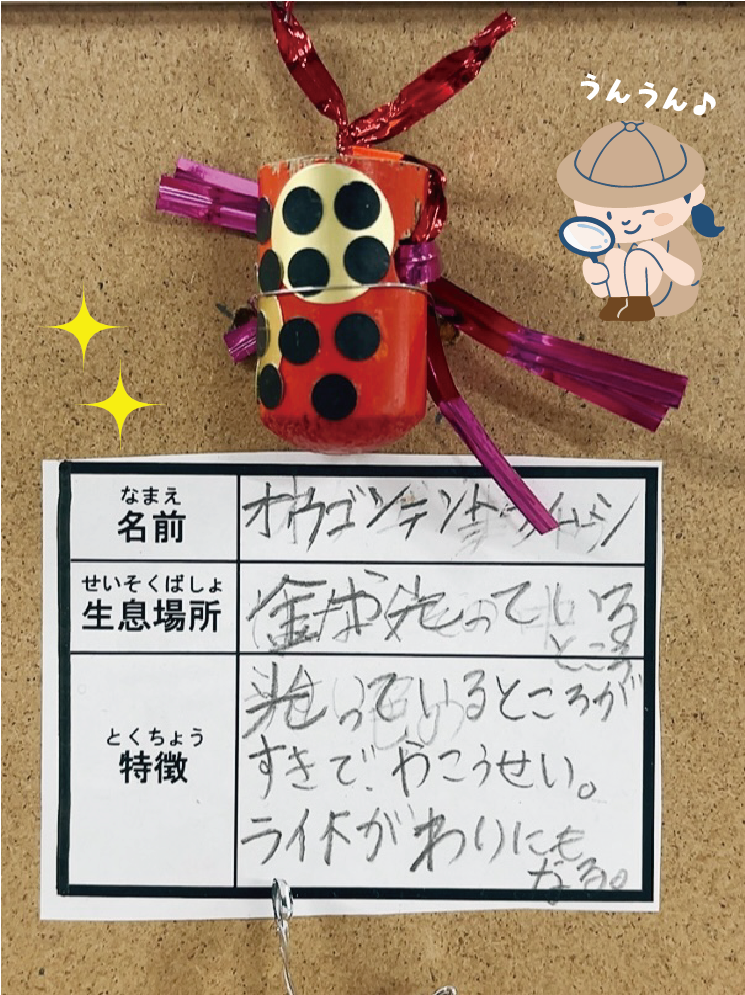 うんうん♪
なまえ
名前
オウゴンテントウムシ
せいそくばしょ
生息場所
金ややっている
ところ
とくちょう
特徴
光っているところが
すきで、やこうせい。
ライトがわりにも
なる。